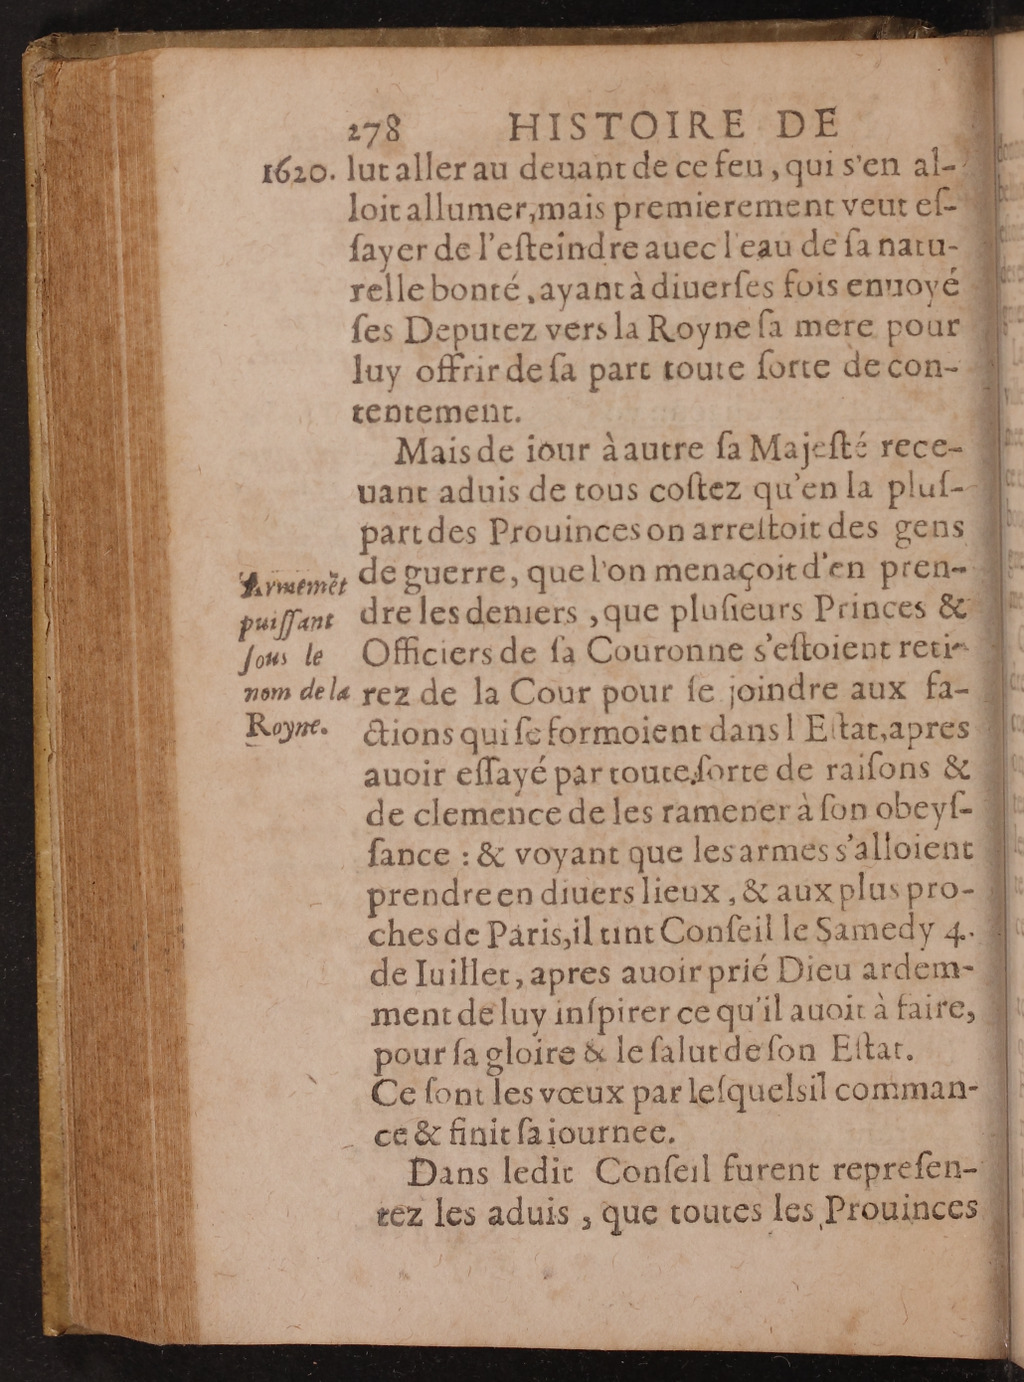 278 HISTOIRE DE
1620. lut aller au deuant de ce feu, qui s'en al-
loit allumer, mais premierement veut eſ-
ſayer de l'eſteindre auec l'eau de ſa natu-
relle bonté, ayant à diuerſes fois enuoyé
ſes Deputez vers la Royne ſa mere pour
luy offrir de ſa part toute ſorte de con-
tentement.
Mais de iour à autre ſa Majeſté rece-
uant aduis de tous coſtez qu'en la pluſ-
part des Prouinces on arreſtoit des gens
de guerre, que l'on menaçoit d'en pren-
dre les deniers, que pluſieurs Princes &
Officiers de ſa Couronne s'eſtoient reti-
rez de la Cour pour ſe joindre aux fa-
ctions qui ſe formoient dans l Eſtat, apres
auoir eſſayé par toute ſorte de raiſons &
de clemence de les ramener à ſon obeyſ-
ſance : & voyant que les armes s'alloient
prendre en diuers lieux, & aux plus pro-
ches de Paris, il tint Conſeil le Samedy 4.
de Iuillet, apres auoir prié Dieu ardem-
ment de luy inſpirer ce qu'il auoit à faire,
pour ſa gloire & le ſalut de ſon Eſtat.
Ce ſont les vœux par leſquels il comman-
ce & finit ſa iournee.
Dans ledit Conſeil furent repreſen-
tez les aduis, que toutes les Prouinces
Armemẽt
puiſſant
ſous le
nom de la
Royne.